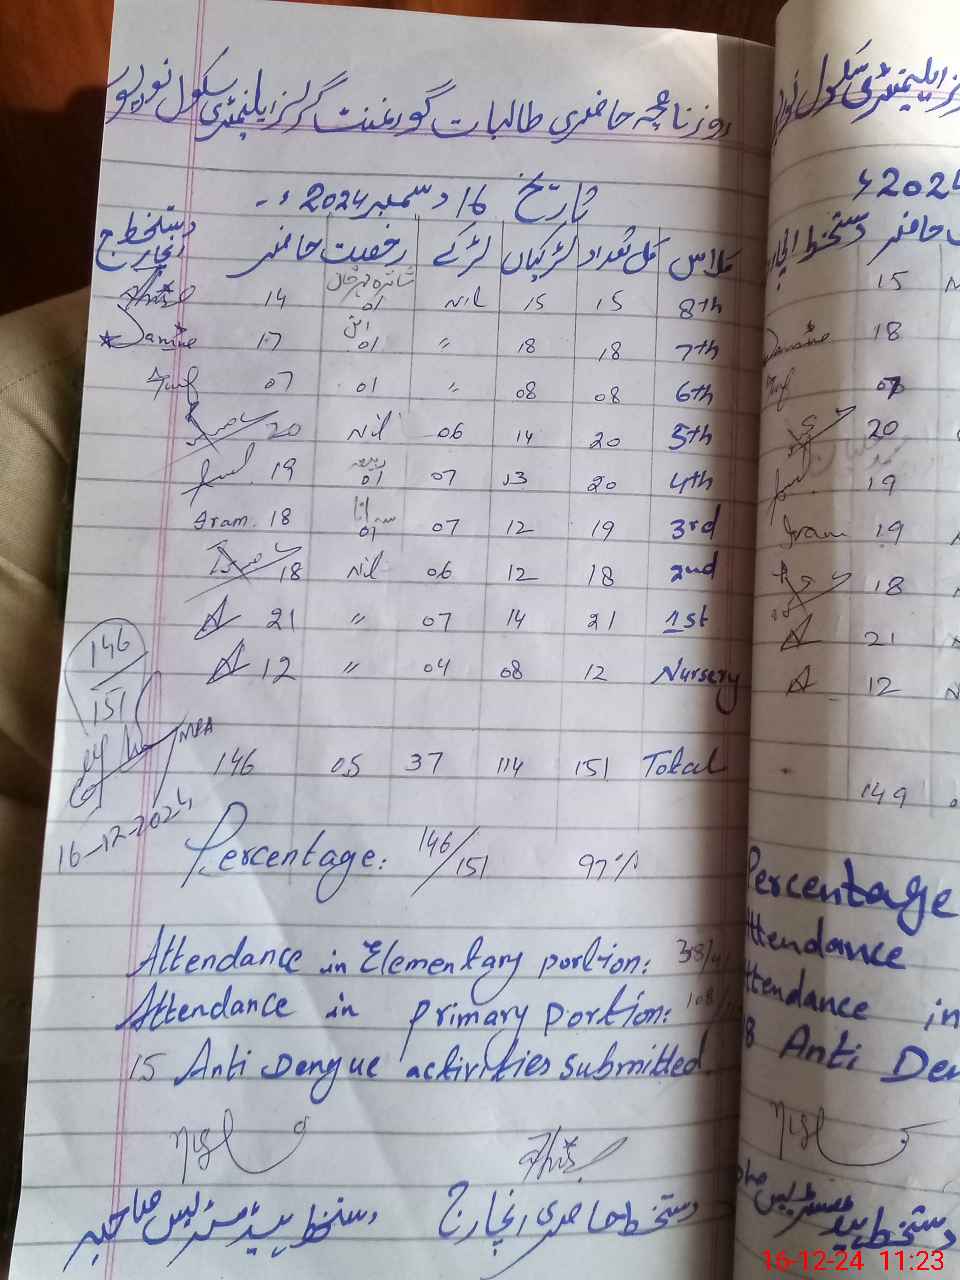 روزنامچہ حاضری طالبات گورنمنٹ گرلز ایلیمنٹری سکول نورپور
تاریخ 16 دسمبر 2024ء
کلاس کل تعداد لڑکیاں لڑکے رخصت حاضر دستخط انچارج
8th 15 15 Nil 01 14
7th 18 18 〃 01 17
6th 08 08 〃 01 07
5th 20 14 06 Nil 20
4th 20 13 07 01 19
3rd 19 12 07 01 18 Iram
2nd 18 12 06 Nil 18
1st 21 14 07 〃 21
Nursery 12 08 04 〃 12
146
151
Total 151 114 37 05 146
MEA
16-12-2024
Percentage: 146/151 97%
Attendance in Elementary portion: 38/41
Attendance in primary portion: 108
15 Anti Dengue activities submitted
دستخط حاضری انچارج دستخط ہیڈ مسٹریس صاحبہ
ایلیمنٹری سکول
2024ء
حاضر دستخط انچارج
15
18
07
20
19
19 Iram
18
21
12
149
Percentage
Attendance
Attendance in
8 Anti Den
دستخط ہیڈ مسٹریس صاحبہ
16-12-24 11:23